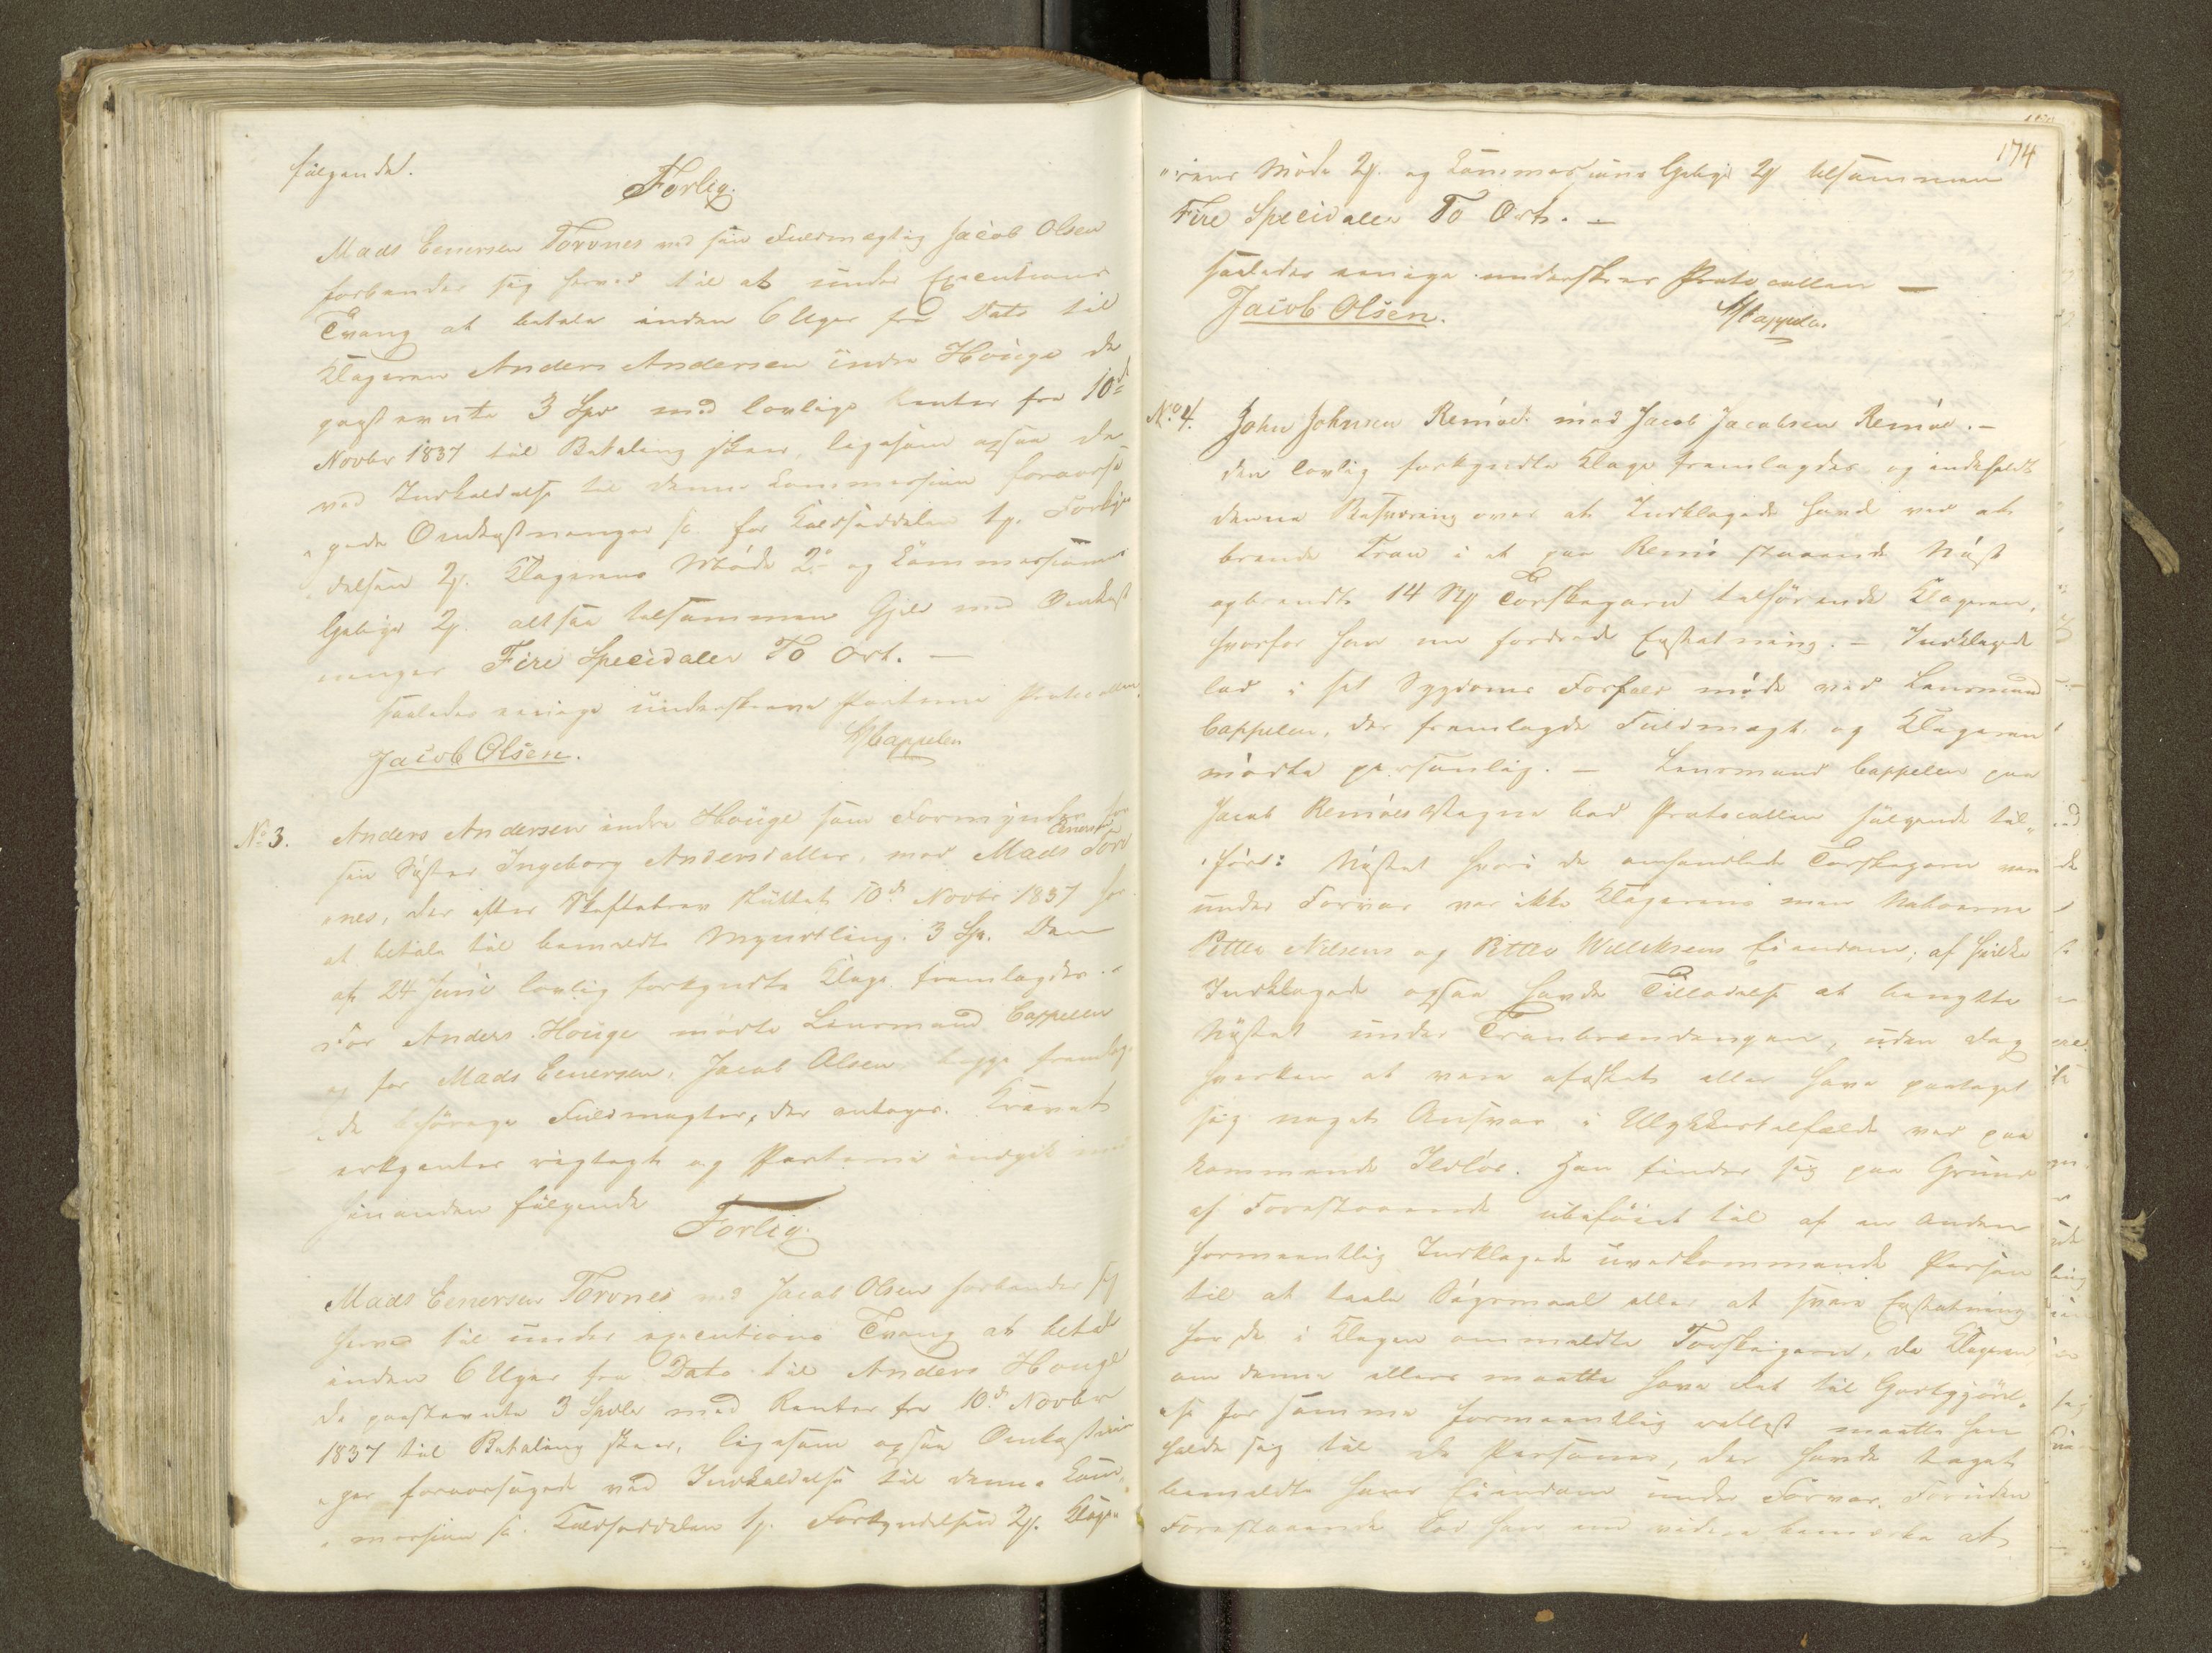 følgende.
Forlig.
Mads Einersen Torvnes ved sin Fuldmægtig Jacob Olsen
forbinder sig herved til at under Executions
Tvang at betale inden 6 Uger fra Dato til
Klageren Anders Andersen indre Houge de
paastevnte 3 Spd med lovlige Renter fra 10de
Novbr 1837 til Betaling skeer, ligesom ogsaa de
ved Indkaldelse til denne Commission foraarsa
"gede Omkostninger sc for Kaldseddelen 1 Forkyn
"delsen 2 Klagerens Møde 2 og Commissionens
Gebyr 2 altsaa tilsammen Gjeld med Omkost
ninger Fire Speciedaler To Ort. —
saaledes eenige underskreve Parterne Protocollen.
Jacob Olsen. Cappelen
No 3. Anders Andersen indre Houge som Formynder for
sin Søster Ingeborg Andersdatter, mod Mads Einersen Torv
nes, der efter Skiftebrev sluttet 10de Novbr 1837 har
at betale til bemeldte Myndtling 3 Spd. Den
af 24 Juni lovlig forkyndte Klage fremlagdes. -
For Anders Houge mødte Lensmand Cappelen
og for Mads Einersen, Jacob Olsen begge fremlag
"de behørige Fuldmagter, der antages. Kravet
erkjentes rigtigt og Parterne indgik med
hinanden følgende
Forlig.
Mads Einersen Torvnes ved Jacob Olsen forbinder sig
herved til under executions Tvang at betale
inden 6 Uger fra Dato til Anders Houge
de paastevnte 3 Spdlr med Renter fra 10de Novbr
1837 til Betaling skeer, ligesom ogsaa Omkostnin
"ger foraarsagede ved Indkaldelse til denne Com"
"mission sc. Kaldseddelen 1 Forkyndelsen 2 Klage"
174
"rens Møde 2 og Commissions Gebyr 2 tilsammen
Fire Speciedaler To Ort. —
saaledes eenige underskrev Protocollen —
Jacob Olsen. Cappelen.
No 4. John Johnsen Remøe mod Jacob Jacobsen Remøe. —
den lovlig forkyndte Klage fremlagdes og indeholdt
denne Besværing over at Indklagede havde ved at
brænde Tran i et paa Remø staaende Nøst
opbrændt 14 Torskegarn tilhørende Klageren,
hvorfor han nu fordrede Erstatning. — Indklagede
lod i sit Sygdoms Forfald møde ved Lensmand
Cappelen, der fremlagde Fuldmagt og Klageren
mødte personlig. — Lensmand Cappelen paa
Jacob Remøes Vegne bad Protocollen følgende til"
"ført: Nøstet hvori de omhandlede Torskegarn var
under Forvar var ikke Klagerens men Naboerne
Petter Nilsens og Petter Willeksens Eiendom; af hvilke
Indklagede ogsaa havde Tilladelse at benytte
Nøstet under Tranbrændingen, uden dog
hverken at være afæsket eller have paataget
sig noget Ansvar i Ulykkestilfælde ved paa
kommende Ildløs. Han finder sig paa Grund
af Forestaaende ubeføiet til af en anden
formeentlig Indklagede uvedkommende Person
til at taale Søgsmaal eller at svare Erstatning
for de i Klagen ommeldte Torskegarn, da Klageren
om denne ellers maatte have Ret til Godtgjørel"
"se for samme formeentlig rettest maatte han
holde sig til de Personer, der havde taget
bemeldte hans Eiendom under Forvar. Foruden
Forestaaende bad han end videre bemerke at